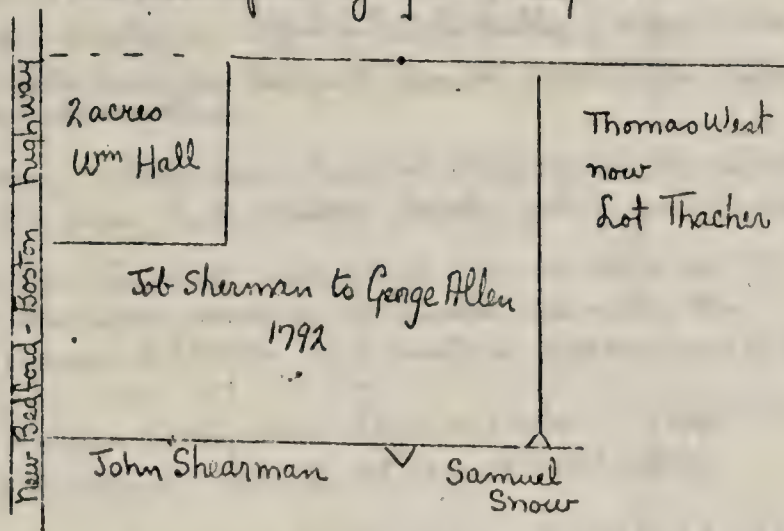 New Bedford - Boston highway
2 acres
Wm Hall
Thomas West
now
Lot Thacher
Job Sherman to George Allen
1792
John Shearman
Samuel
Snow